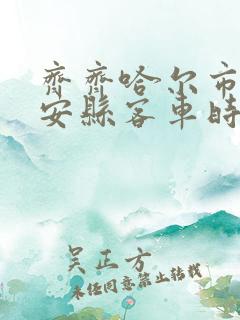 齊齊哈尔市
安縣客車時
吴正方
未经同意禁止转载